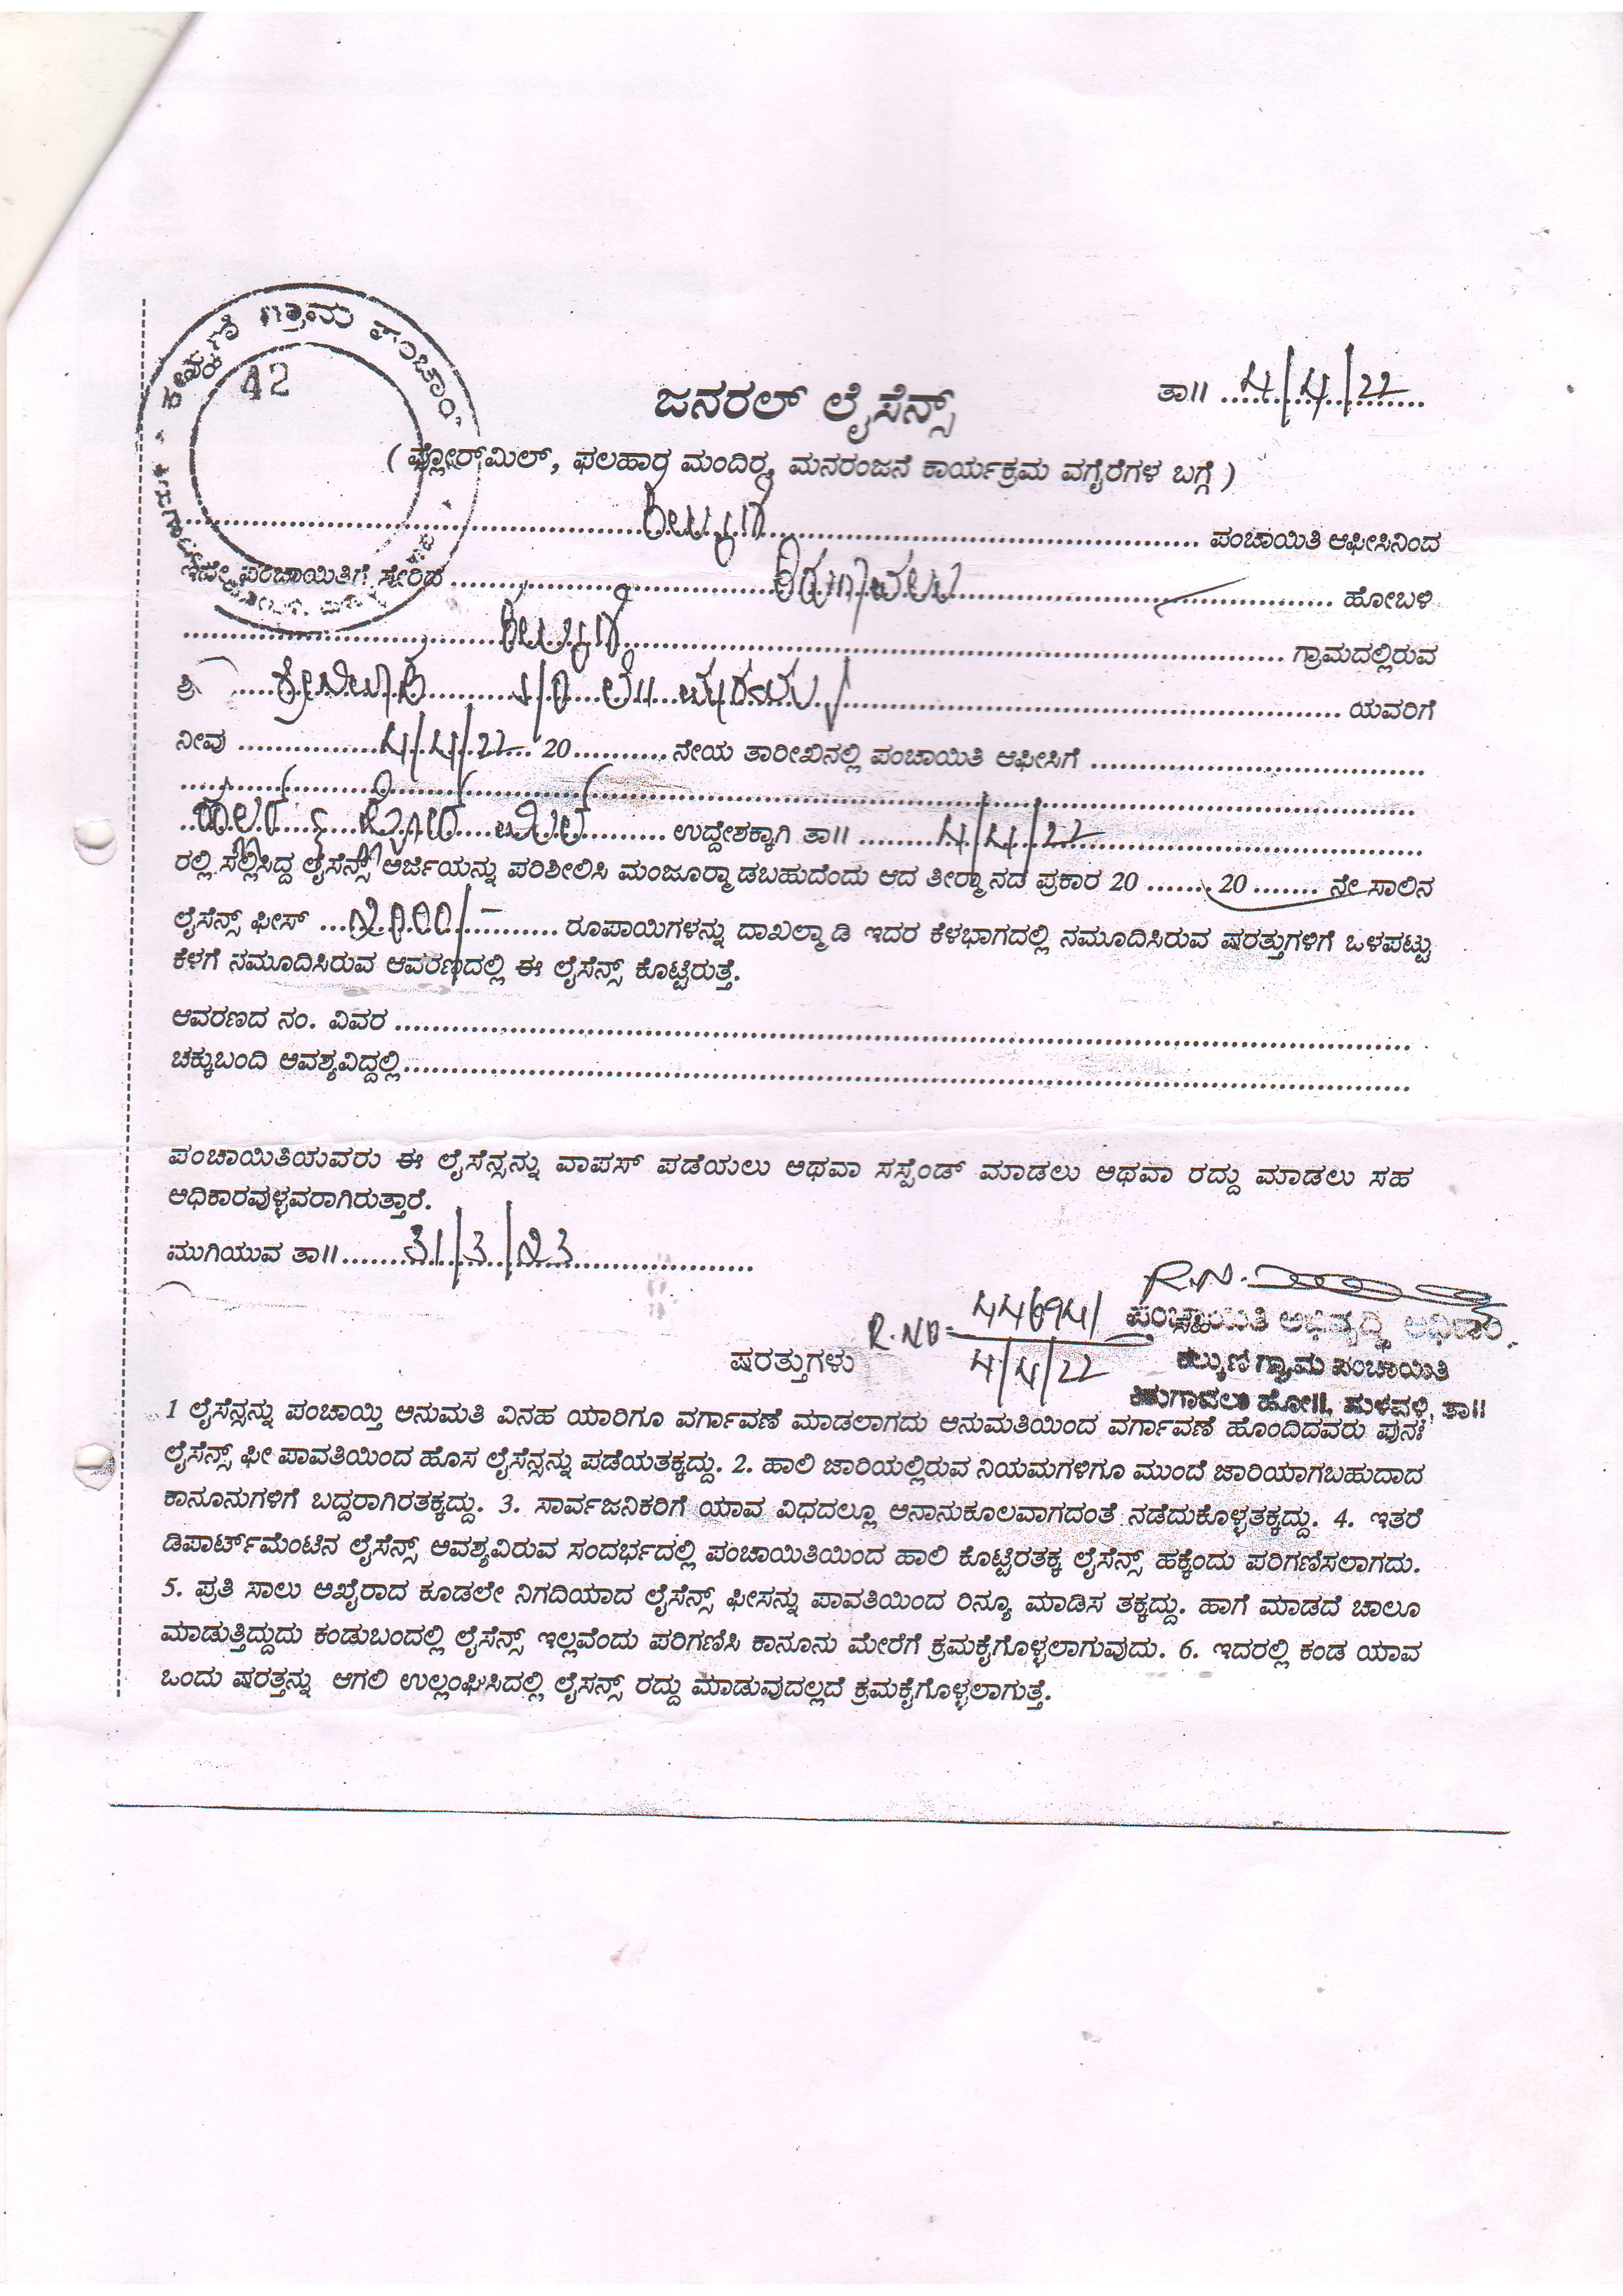 ಗ್ರಾಮ ಪಂಚಾಯಿ
42
ಜನರಲ್ ಲೈಸೆನ್ಸ್
ತಾ॥ 4/4/22
( ಫ್ಲೋರ್‌ಮಿಲ್, ಫಲಹಾರ ಮಂದಿರ, ಮನರಂಜನೆ ಕಾರ್ಯಕ್ರಮ ವಗೈರೆಗಳ ಬಗ್ಗೆ )
ಪಂಚಾಯಿತಿ ಆಫೀಸಿನಿಂದ
ಇದೇ ಪಂಚಾಯಿತಿಗೆ ಸೇರಿದ ಕಿರುಗಾವಲು ಹೋಬಳಿ
ಗ್ರಾಮದಲ್ಲಿರುವ
ಶ್ರೀ ಯವರಿಗೆ
ನೀವು 4/4/22 20 ನೇಯ ತಾರೀಖಿನಲ್ಲಿ ಪಂಚಾಯಿತಿ ಆಫೀಸಿಗೆ
ಉದ್ದೇಶಕ್ಕಾಗಿ ತಾ॥ 4/4/22
ರಲ್ಲಿ ಸಲ್ಲಿಸಿದ್ದ ಲೈಸೆನ್ಸ್ ಅರ್ಜಿಯನ್ನು ಪರಿಶೀಲಿಸಿ ಮಂಜೂರ್ಮಾಡಬಹುದೆಂದು ಆದ ತೀರ್ಮಾನದ ಪ್ರಕಾರ 20 20 ನೇ ಸಾಲಿನ
ಲೈಸೆನ್ಸ್ ಫೀಸ್ 2000/- ರೂಪಾಯಿಗಳನ್ನು ದಾಖಲ್ಮಾಡಿ ಇದರ ಕೆಳಭಾಗದಲ್ಲಿ ನಮೂದಿಸಿರುವ ಷರತ್ತುಗಳಿಗೆ ಒಳಪಟ್ಟು
ಕೆಳಗೆ ನಮೂದಿಸಿರುವ ಆವರಣದಲ್ಲಿ ಈ ಲೈಸೆನ್ಸ್ ಕೊಟ್ಟಿರುತ್ತೆ.
ಆವರಣದ ನಂ. ವಿವರ
ಚಕ್ಕುಬಂದಿ ಅವಶ್ಯವಿದ್ದಲ್ಲಿ
ಪಂಚಾಯಿತಿಯವರು ಈ ಲೈಸೆನ್ಸನ್ನು ವಾಪಸ್ ಪಡೆಯಲು ಅಥವಾ ಸಸ್ಪೆಂಡ್ ಮಾಡಲು ಅಥವಾ ರದ್ದು ಮಾಡಲು ಸಹ
ಅಧಿಕಾರವುಳ್ಳವರಾಗಿರುತ್ತಾರೆ.
ಮುಗಿಯುವ ತಾ॥ 31/3/23
R.N.
R.NO= 446941
4/4/22
ಪಂಚಾಯಿತಿ ಅಭಿವೃದ್ಧಿ ಅಧಿಕಾರಿ
ಕಲ್ಕುಣಿ ಗ್ರಾಮ ಪಂಚಾಯಿತಿ
ಕಿರುಗಾವಲು ಹೋ॥, ಮಳವಳ್ಳಿ, ತಾ॥
ಷರತ್ತುಗಳು
1 ಲೈಸೆನ್ಸನ್ನು ಪಂಚಾಯ್ತಿ ಅನುಮತಿ ವಿನಹ ಯಾರಿಗೂ ವರ್ಗಾವಣೆ ಮಾಡಲಾಗದು ಅನುಮತಿಯಿಂದ ವರ್ಗಾವಣೆ ಹೊಂದಿದವರು ಪುನಃ
ಲೈಸೆನ್ಸ್ ಫೀ ಪಾವತಿಯಿಂದ ಹೊಸ ಲೈಸೆನ್ಸನ್ನು ಪಡೆಯತಕ್ಕದ್ದು. 2. ಹಾಲಿ ಜಾರಿಯಲ್ಲಿರುವ ನಿಯಮಗಳಿಗೂ ಮುಂದೆ ಜಾರಿಯಾಗಬಹುದಾದ
ಕಾನೂನುಗಳಿಗೆ ಬದ್ದರಾಗಿರತಕ್ಕದ್ದು. 3. ಸಾರ್ವಜನಿಕರಿಗೆ ಯಾವ ವಿಧದಲ್ಲೂ ಅನಾನುಕೂಲವಾಗದಂತೆ ನಡೆದುಕೊಳ್ಳತಕ್ಕದ್ದು. 4. ಇತರೆ
ಡಿಪಾರ್ಟ್‌ಮೆಂಟಿನ ಲೈಸೆನ್ಸ್ ಅವಶ್ಯವಿರುವ ಸಂದರ್ಭದಲ್ಲಿ ಪಂಚಾಯಿತಿಯಿಂದ ಹಾಲಿ ಕೊಟ್ಟಿರತಕ್ಕ ಲೈಸೆನ್ಸ್ ಹಕ್ಕೆಂದು ಪರಿಗಣಿಸಲಾಗದು.
5. ಪ್ರತಿ ಸಾಲು ಅಖೈರಾದ ಕೂಡಲೇ ನಿಗದಿಯಾದ ಲೈಸೆನ್ಸ್ ಫೀಸನ್ನು ಪಾವತಿಯಿಂದ ರಿನ್ಯೂ ಮಾಡಿಸ ತಕ್ಕದ್ದು. ಹಾಗೆ ಮಾಡದೆ ಚಾಲೂ
ಮಾಡುತ್ತಿದ್ದುದು ಕಂಡುಬಂದಲ್ಲಿ ಲೈಸೆನ್ಸ್ ಇಲ್ಲವೆಂದು ಪರಿಗಣಿಸಿ ಕಾನೂನು ಮೇರೆಗೆ ಕ್ರಮಕೈಗೊಳ್ಳಲಾಗುವುದು. 6. ಇದರಲ್ಲಿ ಕಂಡ ಯಾವ
ಒಂದು ಷರತ್ತನ್ನು ಆಗಲಿ ಉಲ್ಲಂಘಿಸಿದಲ್ಲಿ ಲೈಸನ್ಸ್ ರದ್ದು ಮಾಡುವುದಲ್ಲದೆ ಕ್ರಮಕೈಗೊಳ್ಳಲಾಗುತ್ತೆ.